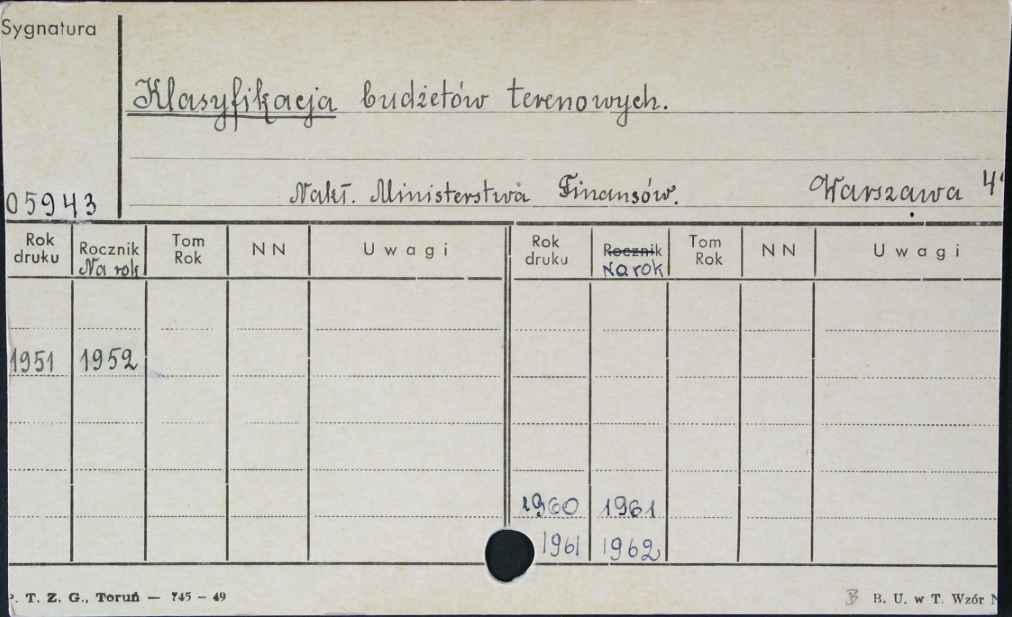 Sygnatura
Klasyfikacja budżetów terenowych.
05943 Nakł. Ministerstwa Finansów. Warszawa 4°
Rok druku Rocznik Na rok Tom Rok NN Uwagi Rok druku Rocznik Na rok Tom Rok NN Uwagi
1951 1952
1960 1961
1961 1962
P. T. Z. G., Toruń — 745 – 49 B B. U. w T. Wzór N